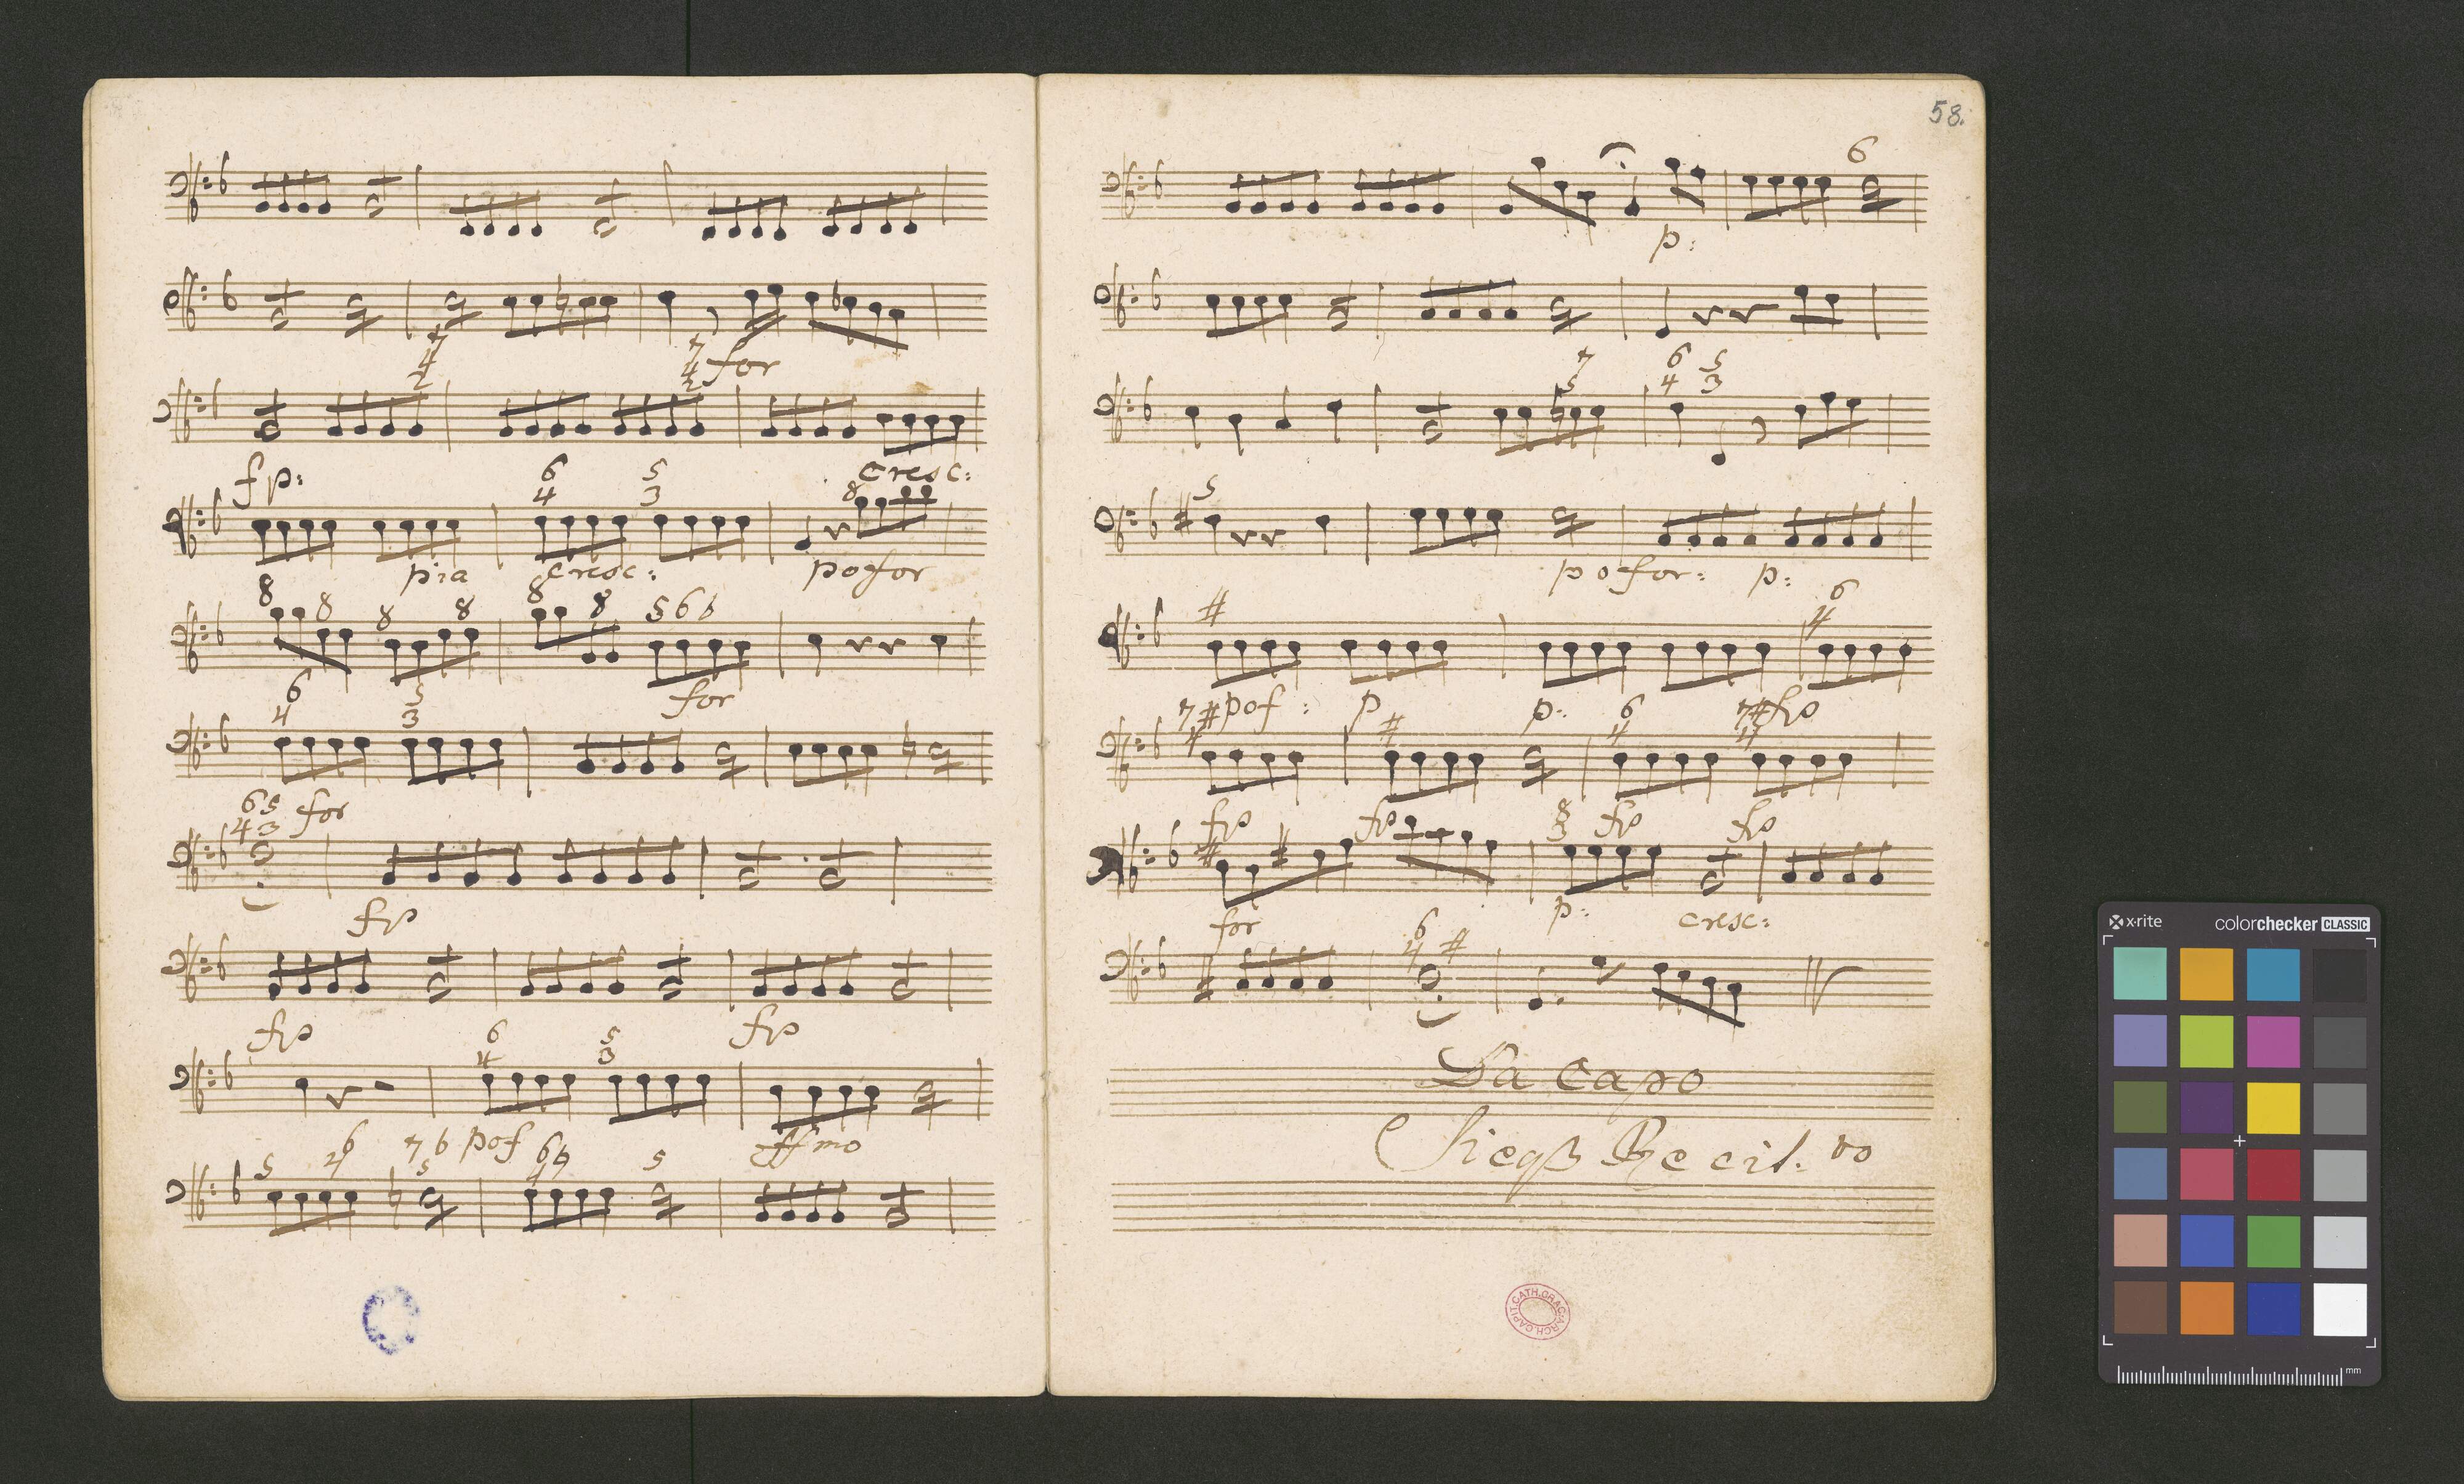 for
fp:
cresc:
p:ia
cresc:
pofor
for
for
fp
fp
fp
pof
ffmo
58.
p:
pofor:
p:
pof:
p
p:
fp
fp
fp
fp
fp
for
p:
cresc:
Da Capo
Recit.vo
CAPIT.CATH.GRAC.ARCH.
x-rite
colorchecker CLASSIC
mm